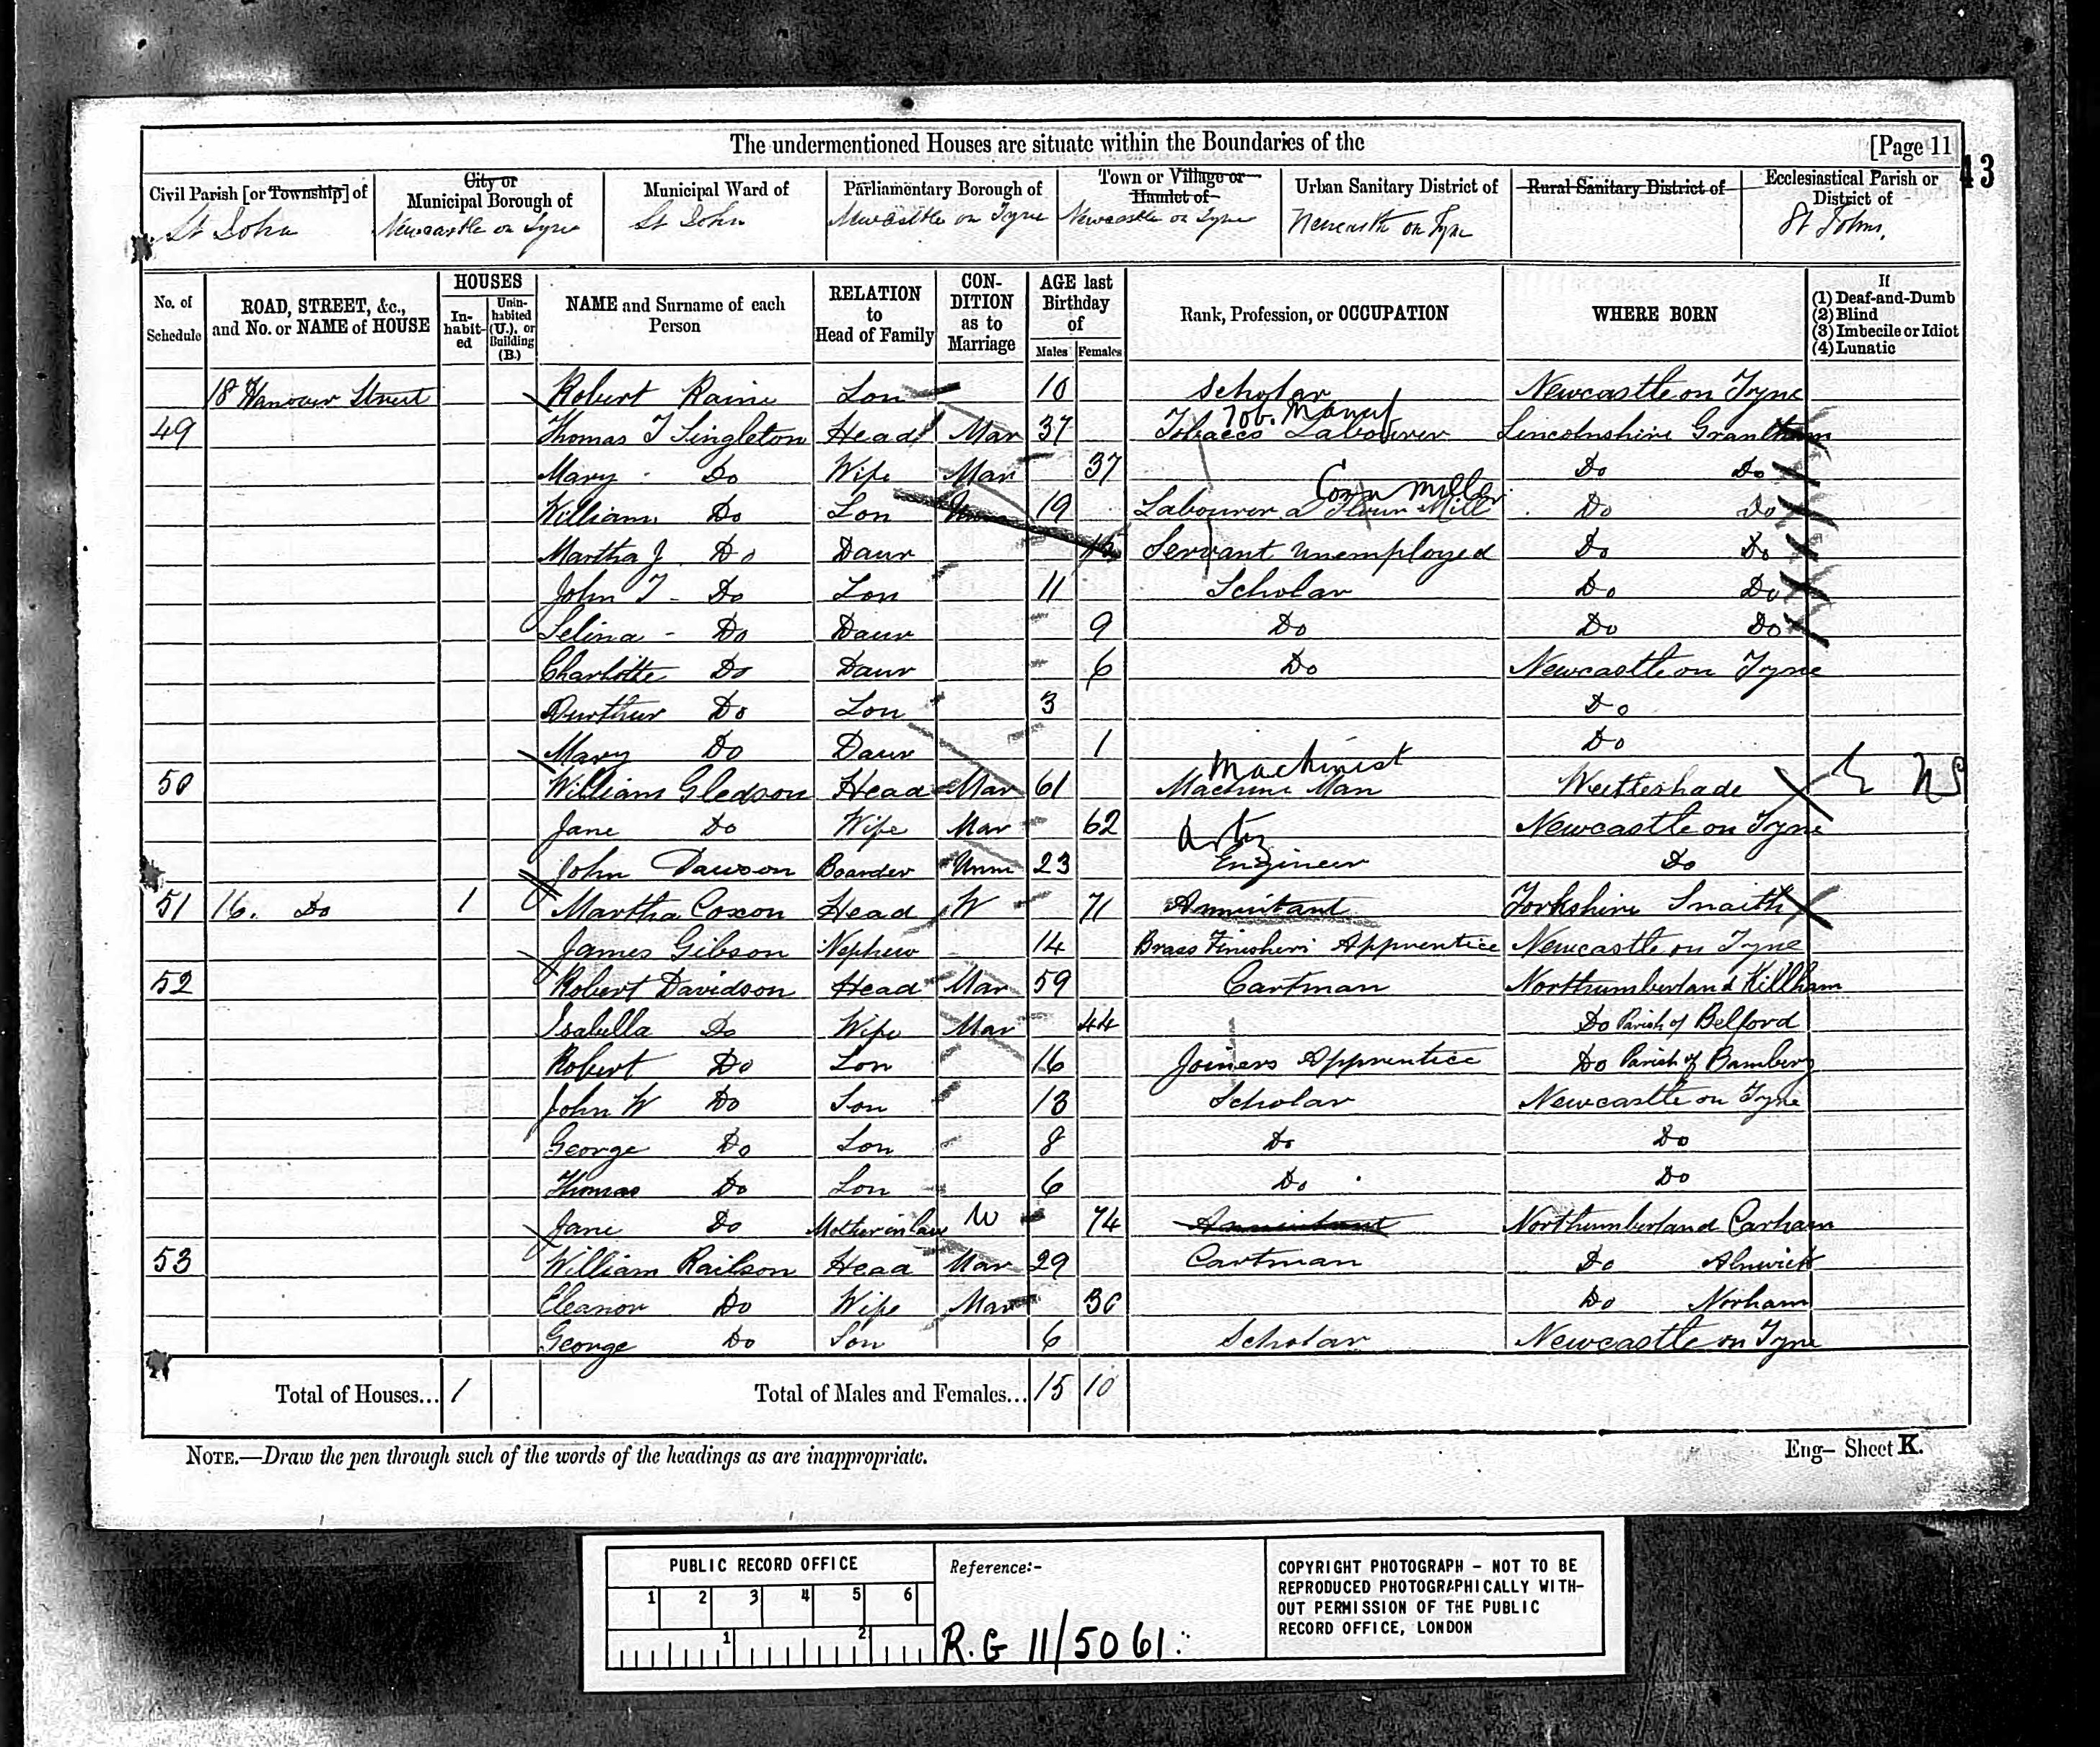 The undermentioned Houses are situate within the Boundaries of the
[Page 11
43
Civil Parish [or Township] of
St John
City or Municipal Borough of
Newcastle on Tyne
Municipal Ward of
St John
Parliamentary Borough of
Newcastle on Tyne
Town or Village or Hamlet of
Newcastle on Tyne
Urban Sanitary District of
Newcastle on Tyne
Rural Sanitary District of
Ecclesiastical Parish or District of
St Johns,
No. of Schedule
ROAD, STREET, &c., and No. or NAME of HOUSE
HOUSES
In-habit-ed
Unin-habited (U.), or Building (B.)
NAME and Surname of each Person
RELATION to Head of Family
CON-DITION as to Marriage
AGE last Birthday of
Males Females
Rank, Profession, or OCCUPATION
WHERE BORN
If
(1) Deaf-and-Dumb
(2) Blind
(3) Imbecile or Idiot
(4) Lunatic
18 Hanover Street Robert Raine Son 10 Scholar Newcastle on Tyne
Tob. Manuf
49 Thomas T Singleton Head Mar 37 Tobacco Labourer Lincolnshire Grantham
Mary Do Wife Mar 37 Do Do
Corn Miller
William Do Son Unm 19 Labourer a Flour Mill Do Do
Martha J Do Daur 15 Servant Unemployed Do Do
John T - Do Son 11 Scholar Do Do
Selina - Do Daur 9 Do Do Do
Charlotte Do Daur 6 Do Newcastle on Tyne
Do Son 3 Do
Mary Do Daur 1 Do
Machinist
50 William Gledson Head Mar 61 Machine Man NS
Jane Do Wife Mar 62 Newcastle on Tyne
John Dawson Boarder Unm 23 Engineer Do
51 16. Do 1 Martha Coxon Head W 71 Annuitant Yorkshire Snaith
James Gibson Nephew 14 Brass Finishers Apprentice Newcastle on Tyne
52 Robert Davidson Head Mar 59 Cartman Northumberland Killham
Isabella Do Wife Mar 44 Do Parish of Belford
Robert Do Son 16 Joiners Apprentice Do Parish of Bamberg
John W Do Son 13 Scholar Newcastle on Tyne
George Do Son 8 Do Do
Thomas Do Son 6 Do Do
Jane Do Mother in law W 74 Annuitant Northumberland Carham
53 William Railson Head Mar 29 Cartman Do Alnwick
Eleanor Do Wife Mar 30 Do Norham
George Do Son 6 Scholar Newcastle on Tyne
Total of Houses... 1 Total of Males and Females... 15 10
NOTE.—Draw the pen through such of the words of the headings as are inappropriate.
Eng- Sheet K.
PUBLIC RECORD OFFICE
1 2 3 4 5 6
1 2
Reference:-
R.G 11/5061
COPYRIGHT PHOTOGRAPH - NOT TO BE
REPRODUCED PHOTOGRAPHICALLY WITH-
OUT PERMISSION OF THE PUBLIC
RECORD OFFICE, LONDON